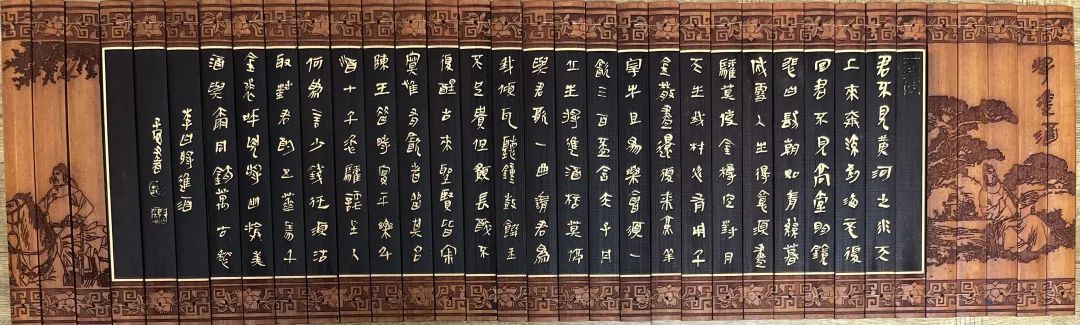 將進酒
君不見黃河之水天
上來奔流到海不復
回君不見高堂明鏡
悲白髮朝如青絲暮
成雪人生得意須盡
驩莫使金樽空對月
天生我材必有用千
金散盡還復來烹羊
宰牛且爲樂會須一
飲三百盃岑夫子丹
丘生將進酒杯莫停
與君歌一曲請君爲
我傾耳聽鐘鼓饌玉
不足貴但願長醉不
復醒古來聖賢皆寂
寞惟有飲者留其名
陳王昔時宴平樂斗
酒十千恣驩謔主人
何爲言少錢徑須沽
取對君酌五花馬千
金裘呼兒將出換美
酒與爾同銷萬古愁
李白將進酒